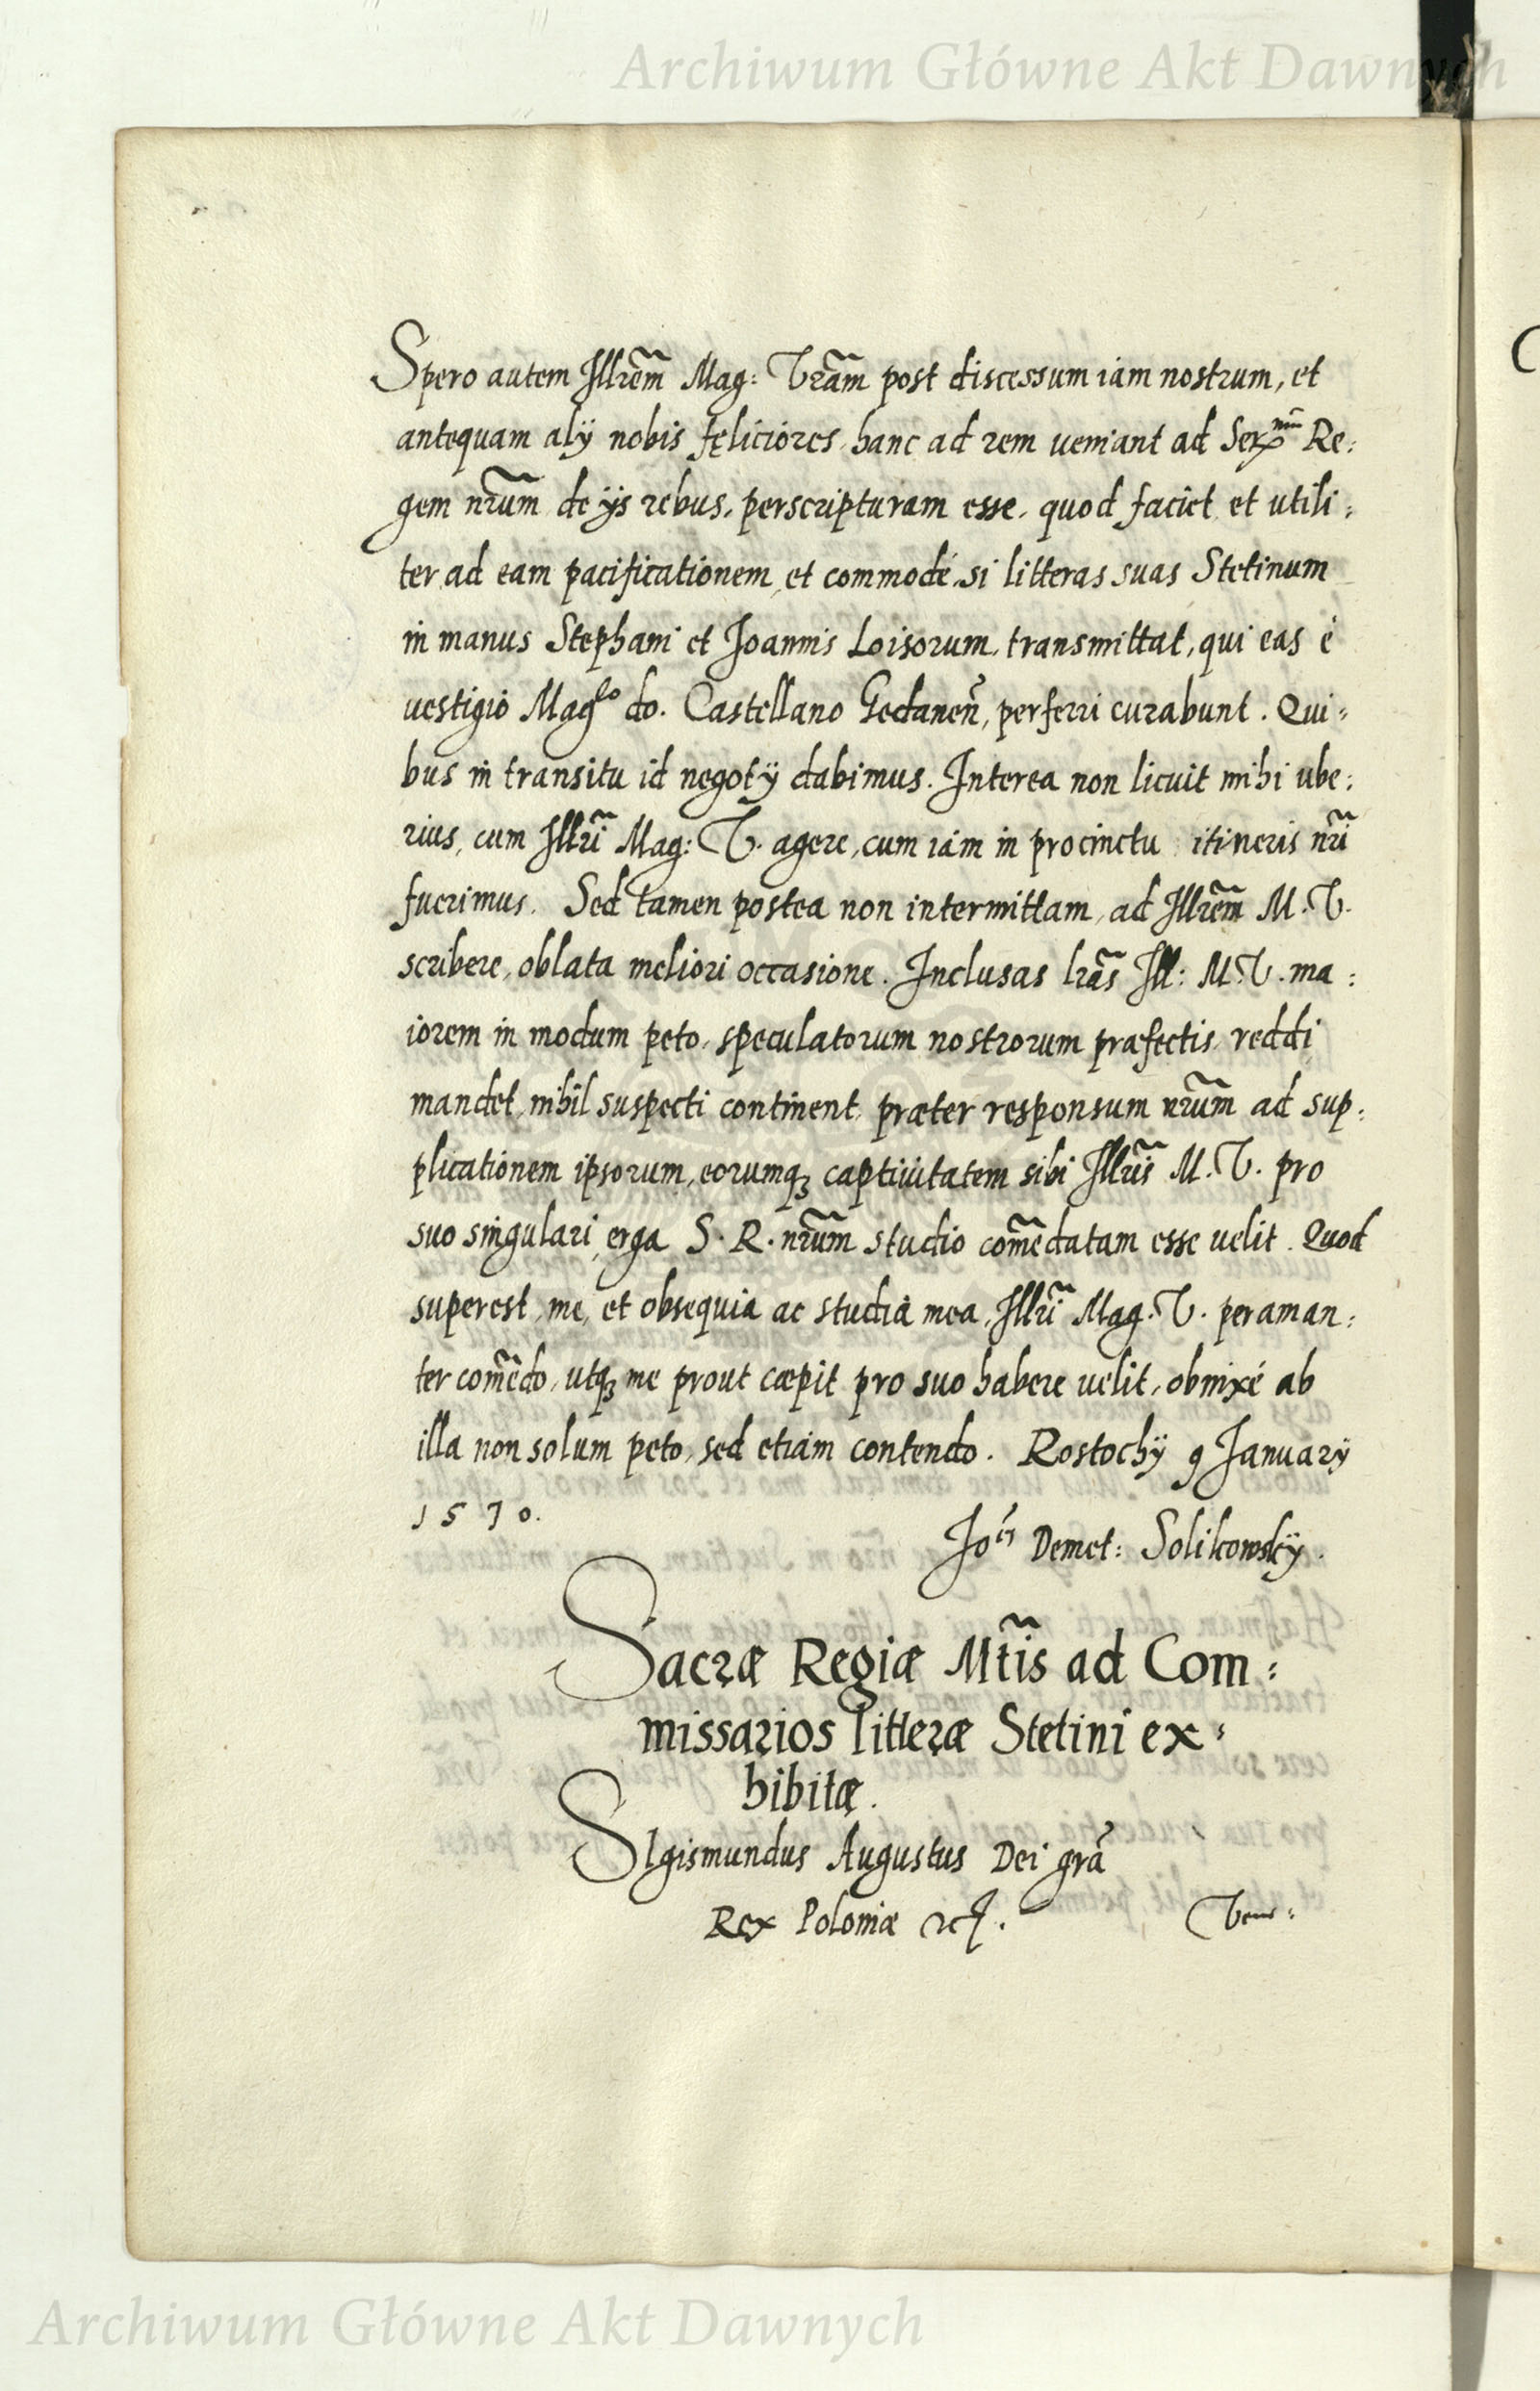 Archiwum Główne Akt Dawnych
Spero autem Illrẽm Mag: Vrãm post discessum iam nostrum, et
antequam alÿ nobis fęliciores hanc ad rem veniant ad Ser^mũ Re:
gem nrũm de ÿs rebus, perscripturam esse, quod faciet et utili:
ter ad eam pacificationem, et commodé, si litteras suas Stetinum
in manus Stephani et Joannis Loisorum, transmittat, qui eas é
vestigio Mag^co do. Castellano Gedaneñ, perferri curabunt. Qui:
bus in transitu id negotÿ dabimus. Interea non licuit mihi ube:
rius, cum Illrĩ Mag: V. agere, cum iam in procinctu itineris nrĩ
fuerimus. Sed tamen postea non intermittam, ad Illrẽm M. V.
scribere, oblata meliori occasione. Inclusas lrãs Ill: M. V. ma:
iorem in modum peto, speculatorum nostrorum præfectis reddi
mandet, nihil suspecti continent, præter responsum nrũm ad sup:
plicationem ipsorum, eorumqꝫ captivitatem sibi Illrĩs M. V. pro
suo singulari erga S. R. nrũm studio com̃edatam esse velit. Quod
superest, me, et obsequia ac studia mea, Illrĩ Mag. V. peraman:
ter com̃edo, utqꝫ me prout cæpit pro suo habere velit, obnixé ab
illa non solum peto, sed etiam contendo. Rostochÿ 9 Januarÿ
1570.
Jo^es Demet: Solikowskÿ.
Sacræ Regiæ Mtĩs ad Com:
missarios litteræ Stetini ex:
hibitæ.
SIgismundus Augustus Dei grã
Rex Poloniæ etc.
Vene:
Archiwum Główne Akt Dawnych